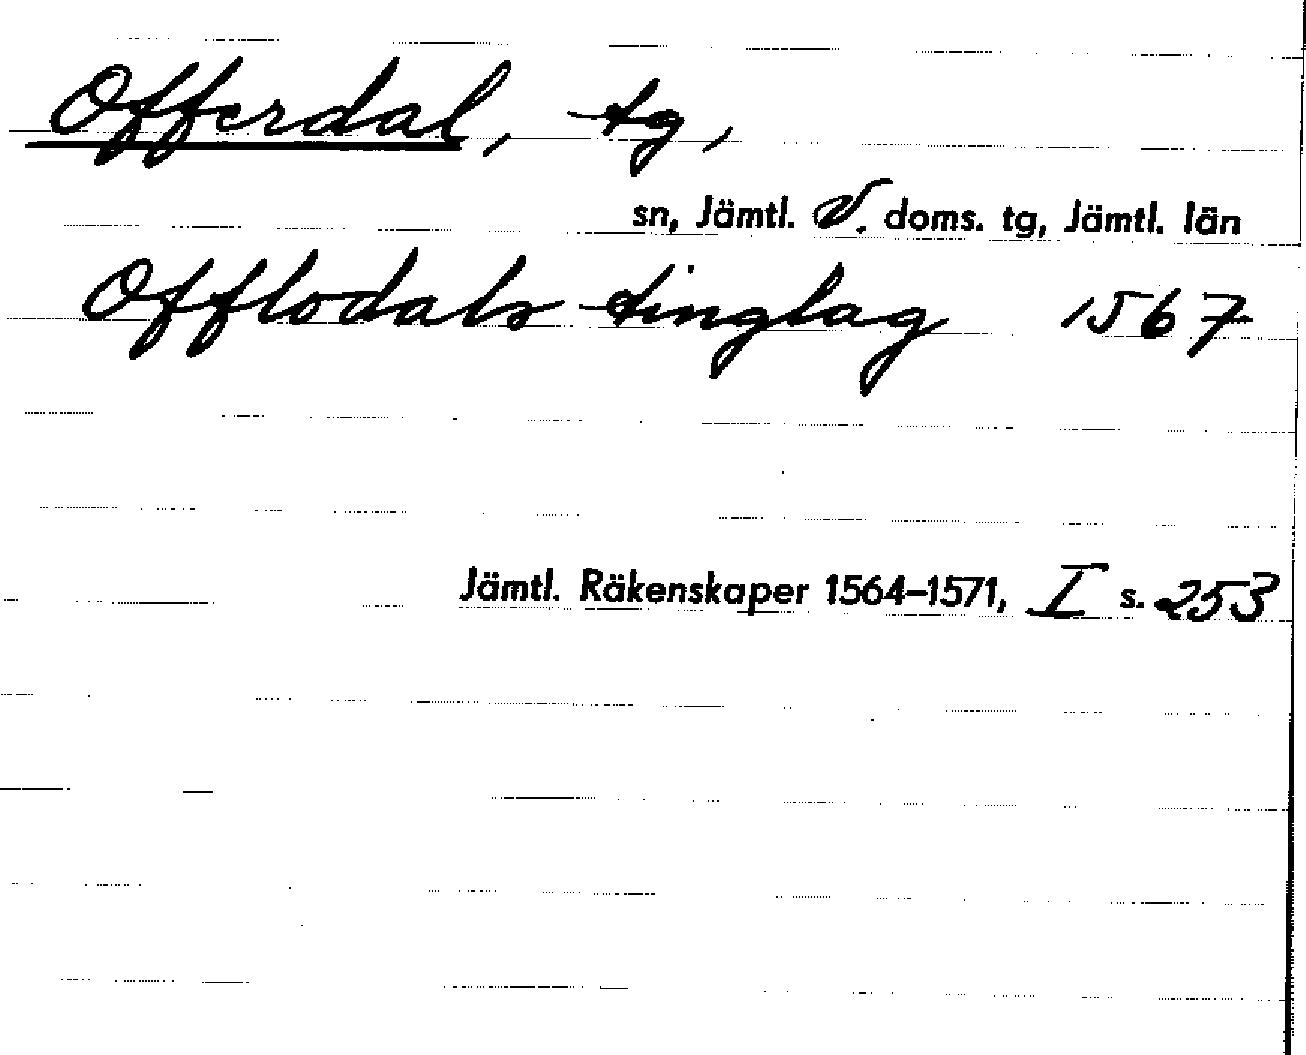 Offerdal, tg,
sn, Jämtl. V. doms. tg, Jämtl. län
Offlodals tinglag 1567
Jämtl. Räkenskaper 1564-1571, I s. 253